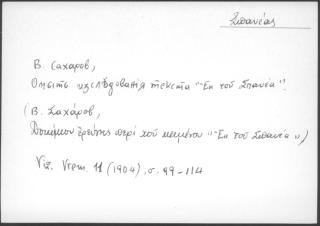 Σπανέας
В. Сахаров,
Опытъ изслѣдованія текста "Ἐκ τοῦ Σπανέα".
(Β. Σαχάροβ,
Δοκίμιον ἐρεύνης περὶ τοῦ κειμένου "Ἐκ τοῦ Σπανέα")
Viz. Vrem. 11 (1904), σ. 99-114